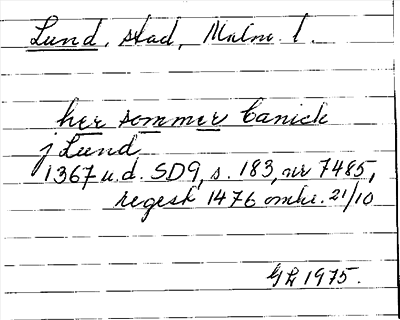 Lund, stad, Malm. l.
her sommer Canick
j Lund
1367 u.d. SD9, s. 183, nr 7485,
regest 1476 omkr. 21/10
GL 1975.